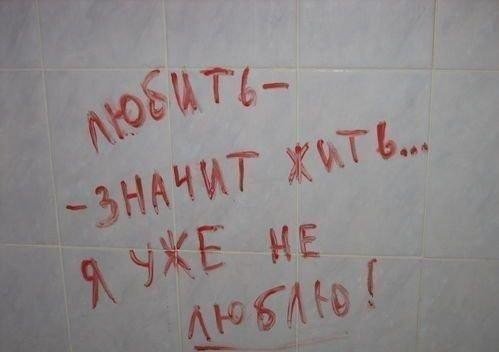 ЛЮБИТЬ-
-ЗНАЧИТ ЖИТЬ...
Я УЖЕ НЕ
ЛЮБЛЮ!